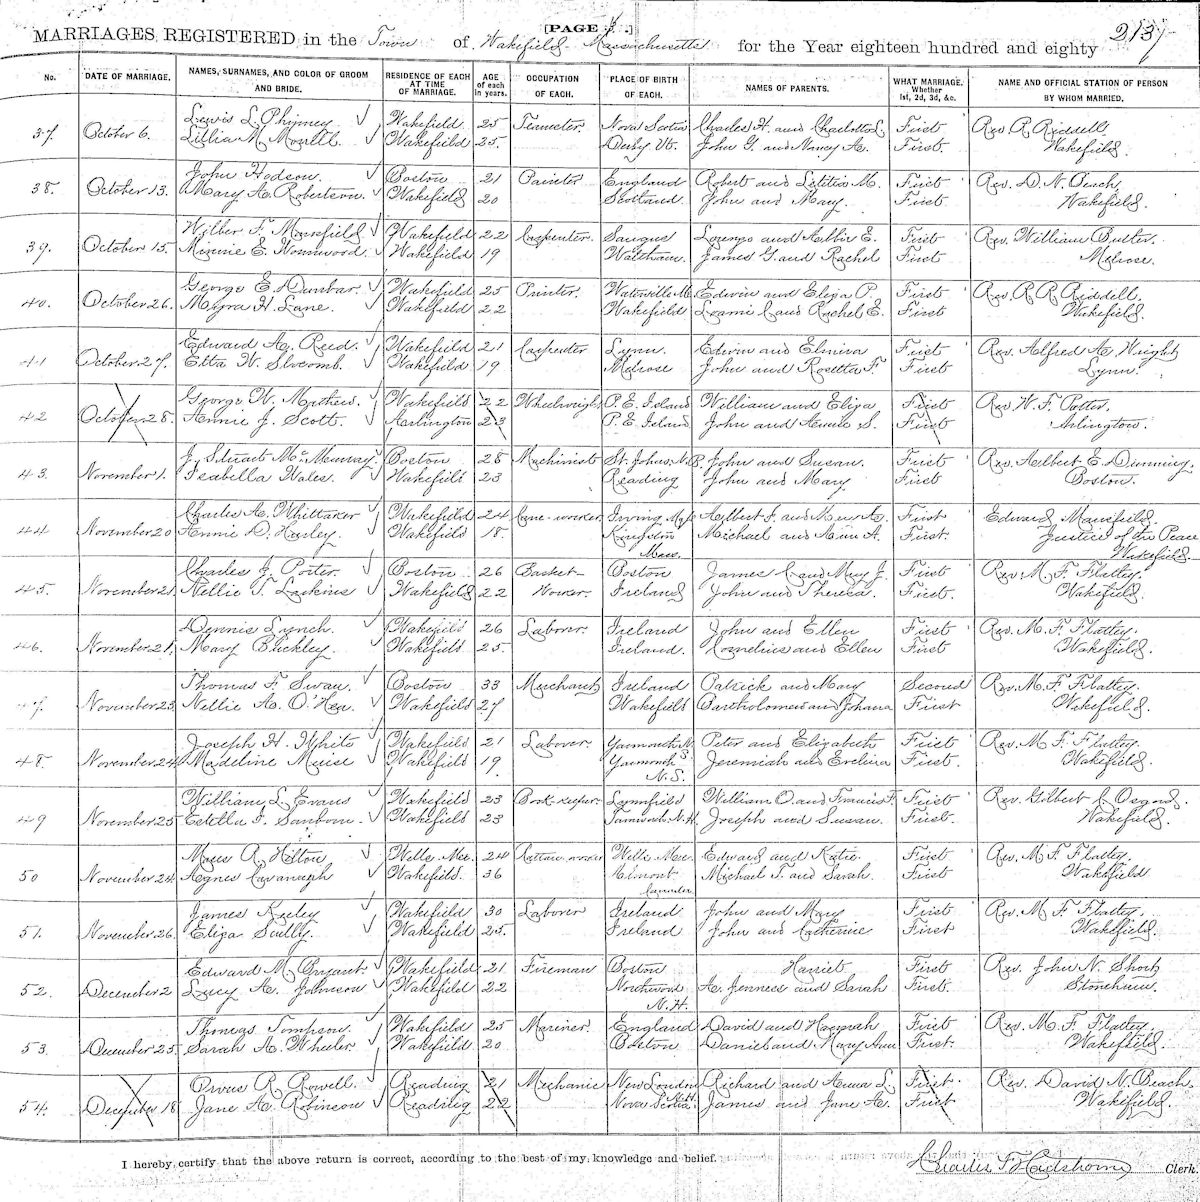 [PAGE .]
213
MARRIAGES REGISTERED in the Town of Wakefield Massachusetts for the Year eighteen hundred and eighty
No. DATE OF MARRIAGE. NAMES, SURNAMES, AND COLOR OF GROOM AND BRIDE. RESIDENCE OF EACH AT TIME OF MARRIAGE. AGE of each in years. OCCUPATION OF EACH. PLACE OF BIRTH OF EACH. NAMES OF PARENTS. WHAT MARRIAGE. Whether 1st, 2d, 3d, &c. NAME AND OFFICIAL STATION OF PERSON BY WHOM MARRIED.
37. October 6. Lewis L. Phinney Wakefield 25 Teamster. Nova Scotia Charles H. and Charlotte L. First Rev R. Riddell,
Lillia M. Wakefield 25. Derby Vt. John G. and Nancy A. First. Wakefield.
38. October 13. John Hodson. Boston 21 Painter England Robert and Letitia M. First Rev. D. N. Beach,
Mary A. Robertson. Wakefield 20 Scotland. John and Mary. First Wakefield.
39. October 15. Wilber F. Mansfield Wakefield 22 Carpenter. Saugus Lorenzo and Abbie E. First Rev. William Butler.
Minnie E. Wormwood. Wakefield 19 Waltham. James G. and Rachel First Melrose.
40. October 26. George E. Dunbar. Wakefield 25 Printer. Waterville Me. Edwin and Eliza P. First Rev. R. R. Riddell.
Myra H. Lane. Wakefield 22 Wakefield Loami C. and Rachel E. First Wakefield.
41 October 27. Edward A. Reed. Wakefield 21 Carpenter Lynn. Edwin and Elmira First Rev. Alfred A. Wright
Etta W. Slocomb. Wakefield 19 Melrose John and Rosetta F. First. Lynn.
42 October 28. George W. Mathews. Wakefield 22 Wheelwright P. E. Island William and Eliza First Rev W. F. Potter.
Annie J. Scott. Arlington 23 P. E. Island John and Annie S. First Arlington.
43. November 1. J. Stewart McMurray. Boston 28 Machinist St. Johns N.B. John and Susan. First Rev. Albert E. Dunning.
Isabella Wales. Wakefield 23 Reading John and Mary. First Boston.
44 November 20 Charles A. Whittaker Wakefield 24 Cane-worker. Irving Mass. Albert F. and First. Edward Mansfield.
Annie D. Hanley. Wakefield 18. Kingston Mass. Michael and Ann A. First. Justice of the Peace Wakefield.
45. November 21. Charles J. Porter. Boston 26 Basket- Boston James C. and Mary J. First Rev. M. F. Flatley.
Nellie T. Larkins Wakefield 22 Ireland John and Theresa. First. Wakefield.
46. November 21. Dennis Lynch. Wakefield 26 Laborer. Ireland John and Ellen First Rev. M. F. Flatley.
Mary Buckley. Wakefield 25. Ireland. Cornelius and Ellen First Wakefield.
47. November 23. Thomas F. Swan. Boston 33 Merchant Ireland Patrick and Mary Second Rev. M. F. Flatley.
Nellie A. O'Hea. Wakefield 27 Wakefield Bartholomew and Johana First Wakefield.
48. November 24 Joseph H. White Wakefield 21 Laborer. Yarmouth N.S. Peter and Elizabeth First Rev. M. F. Flatley.
Madeline Muise Wakefield 19. Yarmouth N.S. Jeremiah and Evelina First. Wakefield.
49 November 25 William L. Evans Wakefield 23 Book-keeper. Lynnfield William O. and Francis F. First. Rev. Gilbert C. Osgood.
Estella J. Sanborn. Wakefield 23 Tamworth N.H. Joseph and Susan. First. Wakefield.
50 November 24. Hilton Wells Me. 24 Rattan-worker Wells Me. Edward and Katie. First Rev. M. F. Flatley.
Agnes Cavanagh Wakefield. 36 Michael T. and Sarah. First Wakefield
51. November 26. James Keeley Wakefield 30 Laborer Ireland John and Mary First Rev. M. F. Flatley,
Eliza Scully. Wakefield 25. Ireland John and Catherine First Wakefield.
52. December 2 Edward M. Bryant. Wakefield 21 Fireman Boston Harriet First Rev. John N. Short
Lucy A. Johnson Wakefield 22 Northwood N.H. A. Jenness and Sarah First. Stoneham.
53. December 25. Thomas Tompson. Wakefield 25 Mariner. England David and Hannah First Rev. M. F. Flatley,
Sarah A. Wheeler. Wakefield 20 Boston Daniel and Mary Ann First. Wakefield.
54. December 18. Orvus R. Rowell. Reading 21 Mechanic New London N.H. Richard and Anna L. First. Rev. David N. Beach.
Jane A. Robinson Reading 22 Nova Scotia. James and Jane A. First Wakefield.
I hereby certify that the above return is correct, according to the best of my knowledge and belief.
Charles F Hartshorne Clerk.